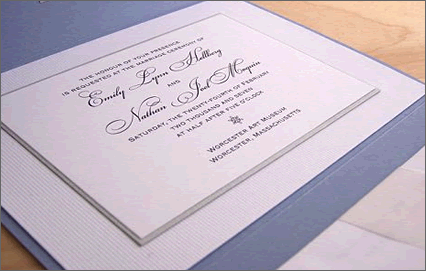 THE HONOUR OF YOUR PRESENCE
IS REQUESTED AT THE MARRIAGE CEREMONY OF
Emily Lynn Hallberg
AND
Nathan Joel Maguin
SATURDAY, THE TWENTY-FOURTH OF FEBRUARY
TWO THOUSAND AND SEVEN
AT HALF AFTER FIVE O'CLOCK
WORCESTER ART MUSEUM
WORCESTER, MASSACHUSETTS